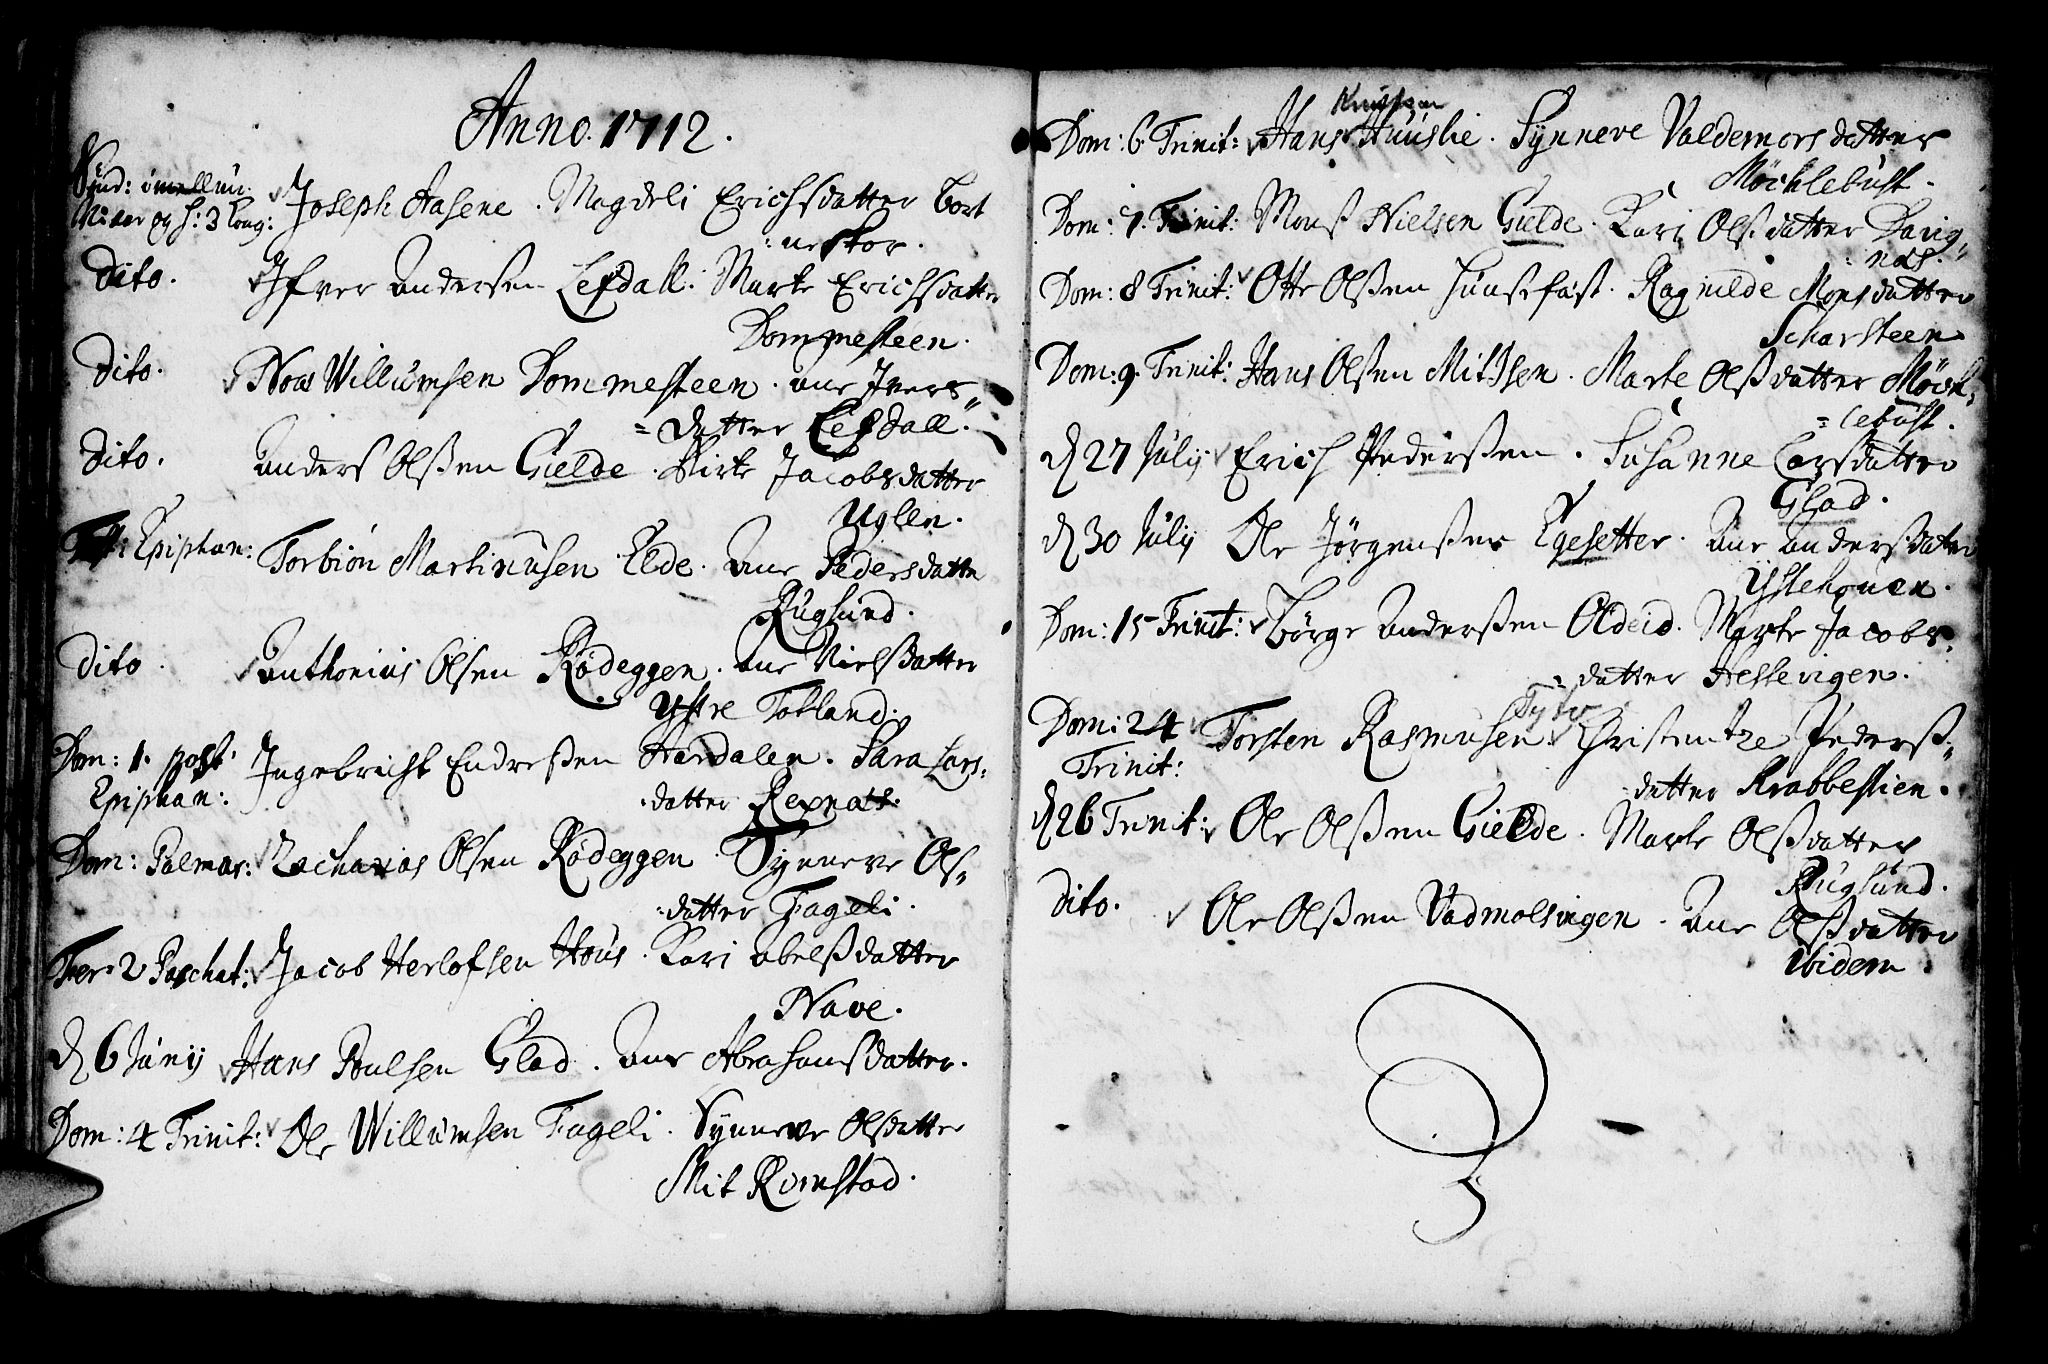 Anno. 1712.
Sünd: imellum
og H: 3 Kong: Joseph Aasene. Magdeli Erichsdatter Bort
=neskor.
Dito. Ifver Andersen Lefdall. Marte Erichsdatter
Dommesteen.
Dito. Noa Willumsen Dommesteen. Ane Ivers=
=datter Lefdall.
Dito. Anders Olßen Gielde. Birte Jacobsdatter
Uglen.
Epiphan: Torbiön Martinusen Elde. Ane Pedersdatte
Rugsund.
Dito. Anthonius Olsen Rödeggen. Ane Nielsdatter
Ystre Totland.
Dom: 1. post Ingebricht Endreßen Hordalen. Sara Lars=
Epiphan: datter Rexnæs.
Dom: Palmar: Zacharias Olsen Rödeggen. Synneve Ols=
=datter Fageli.
Fer: 2 Paschat: Jacob Herlofsen Hous. Kari Abelßdatter
Nave.
D 6 Junij Hans Poulsen Glad. Ane Abrahamsdatter.
Dom: 4 Trinit: Ole Willumsen Fageli. Synneve Olsdatter
Mit Rimstad.
Knudsen
Dom: 6. Trinit: Hans Huuslie. Synneve Valdemorsdatter
Möcklebust.
Dom: 7. Trinit: Monß Nielsen Gielde. Kari Olsdatter Davig=
=næs.
Dom: 8 Trinit: Otte Olßen Huusefast. Ragnilde Monsdatter
Scharsteen
Dom: 9. Trinit: Hans Olßen Mit Isen. Marte Olßdatter Möck=
=lebust.
D 27 Julij Erich Pederßen. Susanne Larsdatter
Glad.
D 30 Julij Ole Jörgenßen Egesetter. Ane Andersdater
Ystehouen.
Dom: 15 Trinit: Börge Anderßen Oldeid. Marte Jacobs=
=datter Hessevigen.
Dom: 24 Torsten Rasmusen. Christentze Pederß=
Trinit: datter Krabbestien.
D 26 Trinit: Ole Olßen Gielde. Marte Olßdatter
Rugsund.
Dito. Ole Olßen Vadmolsvigen. Ane Olßdatter
Ibidem